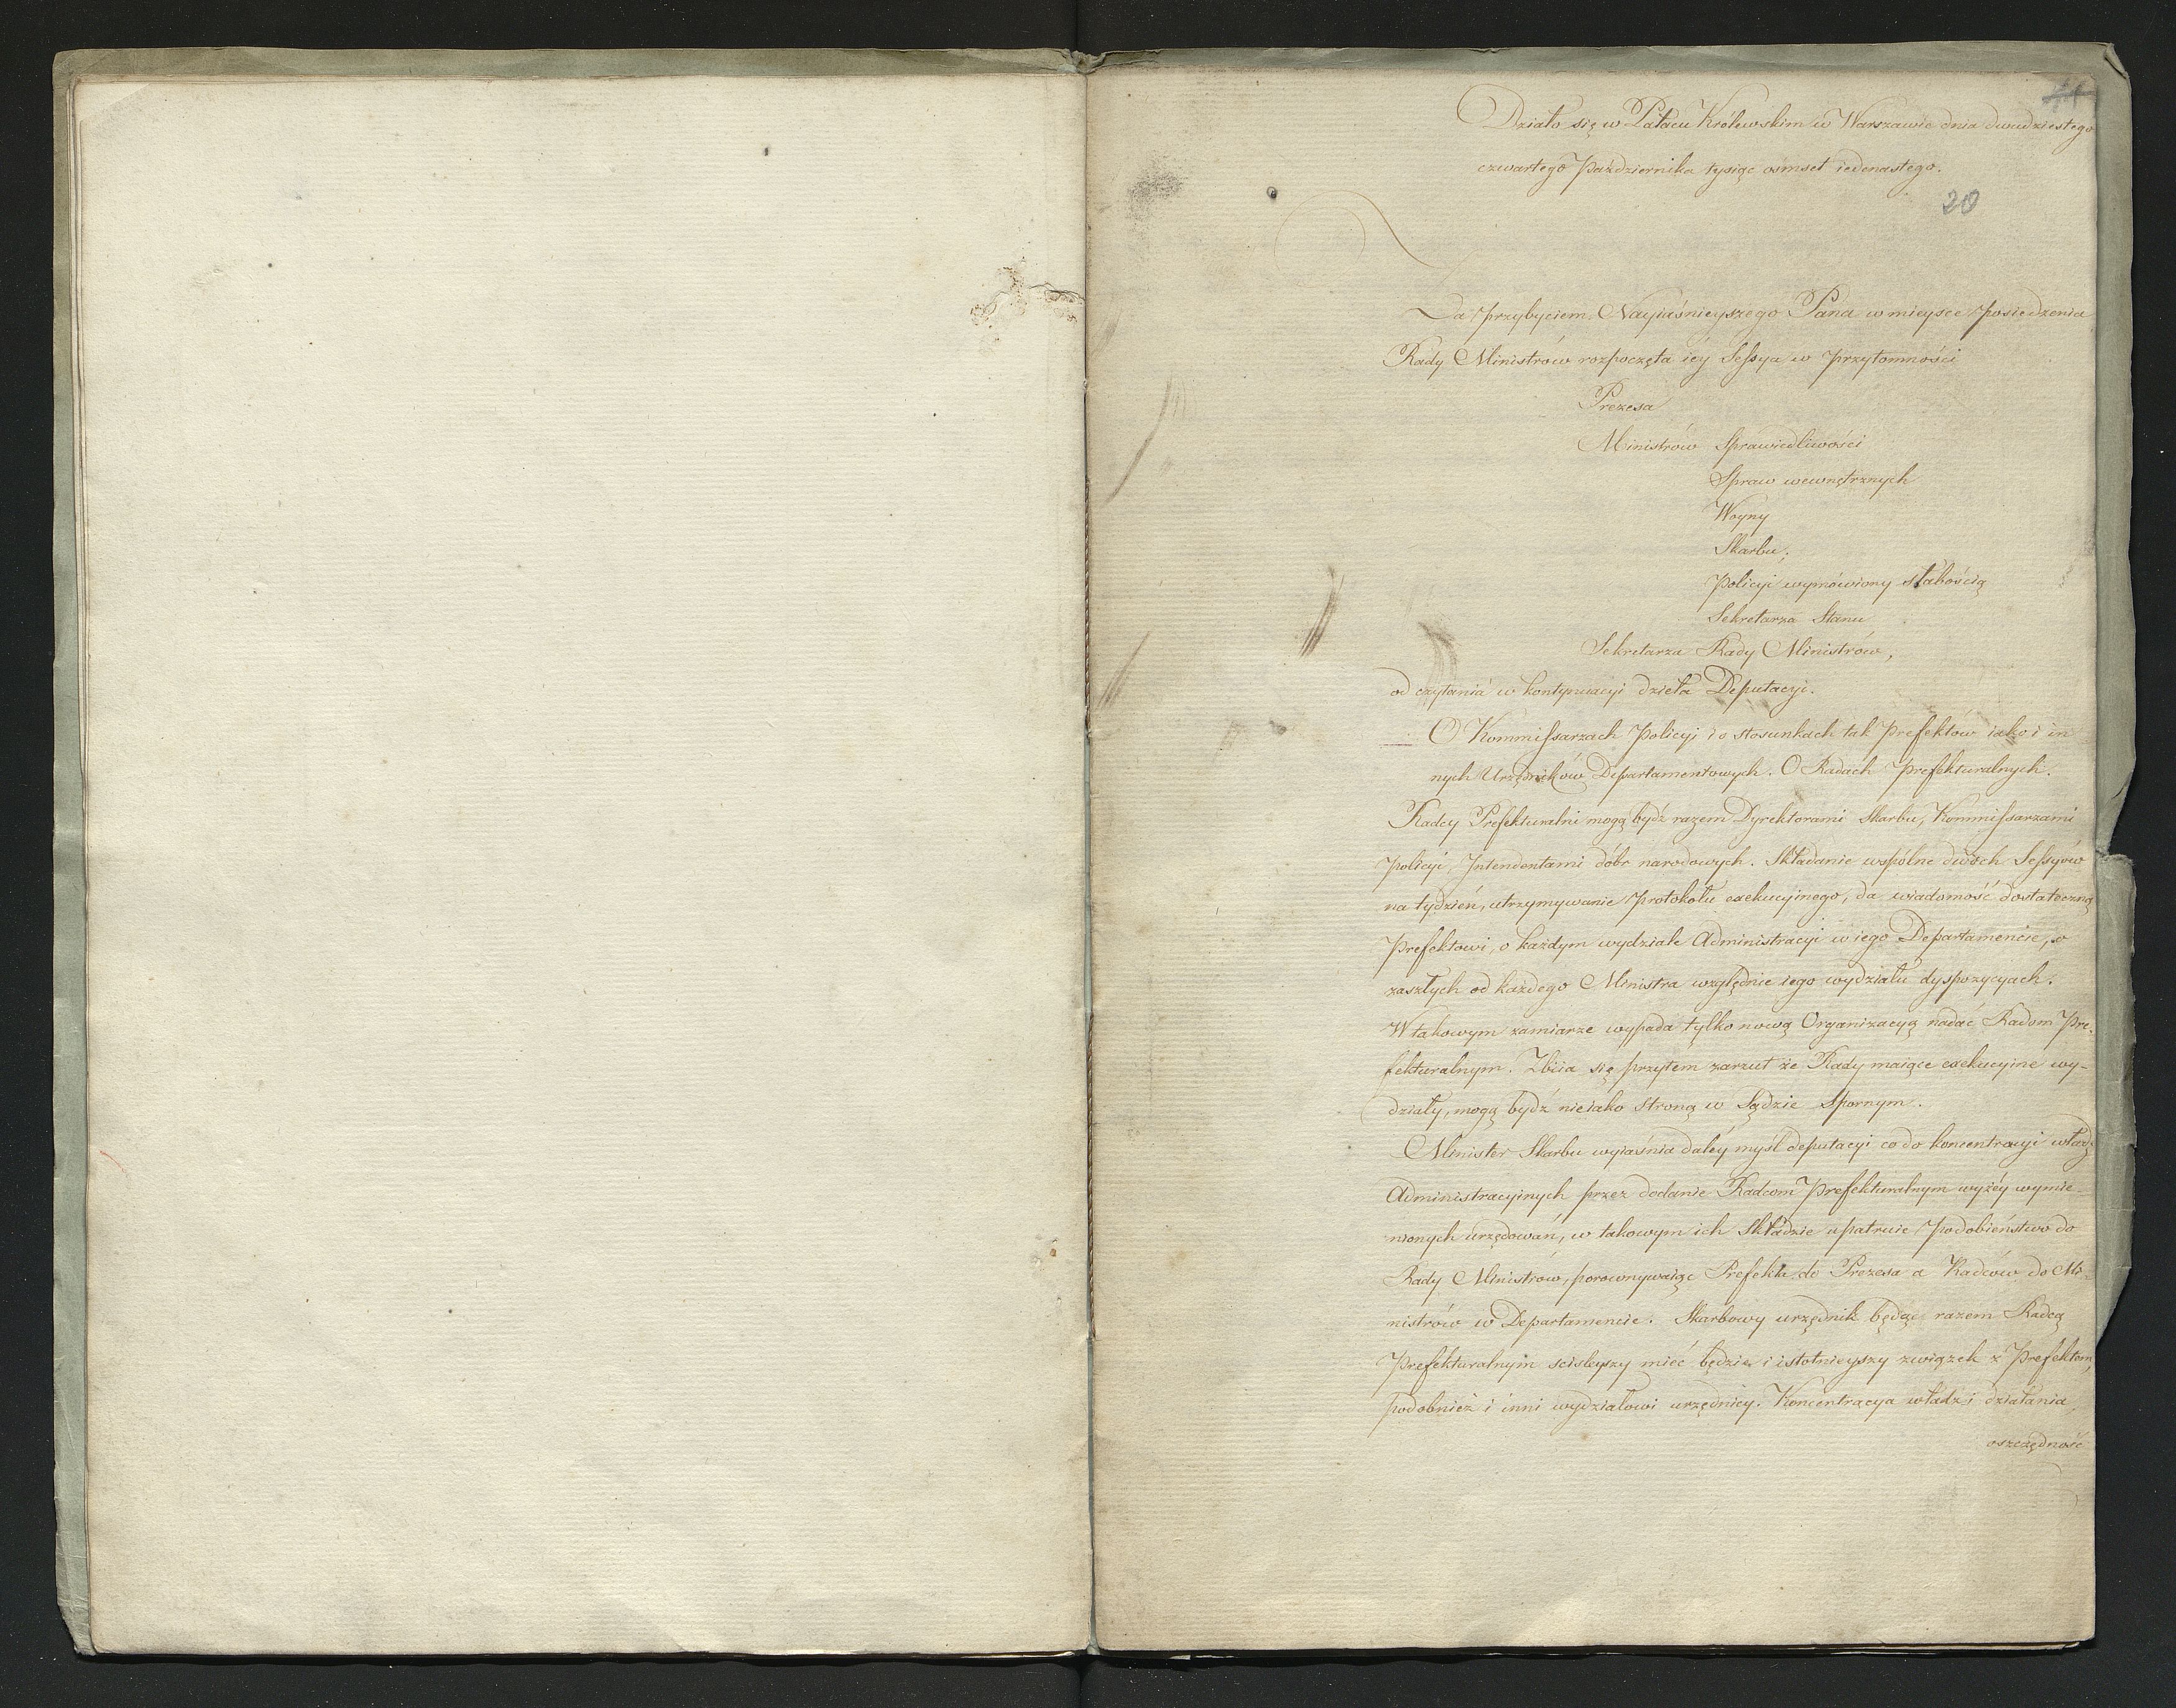 Działo się w Pałacu Królewskim w Warszawie dnia dwudziestego
czwartego Października tysiąc ośmset iedenastego.
20
Za przybyciem Nayiaśnieyszego Pana w mieysce posiedzenia
Rady Ministrów rozpoczęta iéy Sessya w przytomności
Prezesa
Ministrów Sprawiedliwości
Spraw wewnętrznych
Woyny
Skarbu;
Policyi wymówiony słabością
Sekretarza Stanu
Sekretarza Rady Ministrów,
od czytania w kontynuacyi dzieła Deputacyi.
O Kommissarzach Policyi i o stosunkach tak Prefektów iako i in
nych Urzędników Departamentowych. O Radach Prefekturalnych.
Radcy Prefekturalni mogą bydź razem Dyrektorami Skarbu, Kommissarzami
Policyi, Intendentami dóbr narodowych. Składanie wspólne dwóch Sessyów
na tydzień, utrzymywanie Protokołu exekucyinego, da wiadomość dostateczną
Prefektowi, o każdym wydziale Administracyi w iego Departamencie, o
zaszłych od każdego Ministra względnie iego wydziału dyspozycyach.
W takowym zamiarze wypada tylko nową Organizacyą nadać Radom Pre-
fekturalnym. Zbiia się przytem zarzut że Rady maiące exekucyine wy-
działy, mogą bydź nieiako stroną w Sądzie Spornym.
Minister Skarbu wyiaśnia daléy myśl deputacyi co do koncentracyi władz
Administracyinych przez dodanie Radcom Prefekturalnym wyżéy wymie-
nionych urzędowań, w takowym ich Składzie upatruie podobieństwo do
Rady Ministrów, porownywaiąc Prefekta do Prezesa a Radców do Mi-
nistrów w Departamencie. Skarbowy urzędnik będąc razem Radcą
Prefekturalnym scisleyszy mieć będzie i istotnieyszy związek z Prefektem,
podobnież i inni wydziałowi urzędnicy. Koncentracya władz i działania,
oszczędność